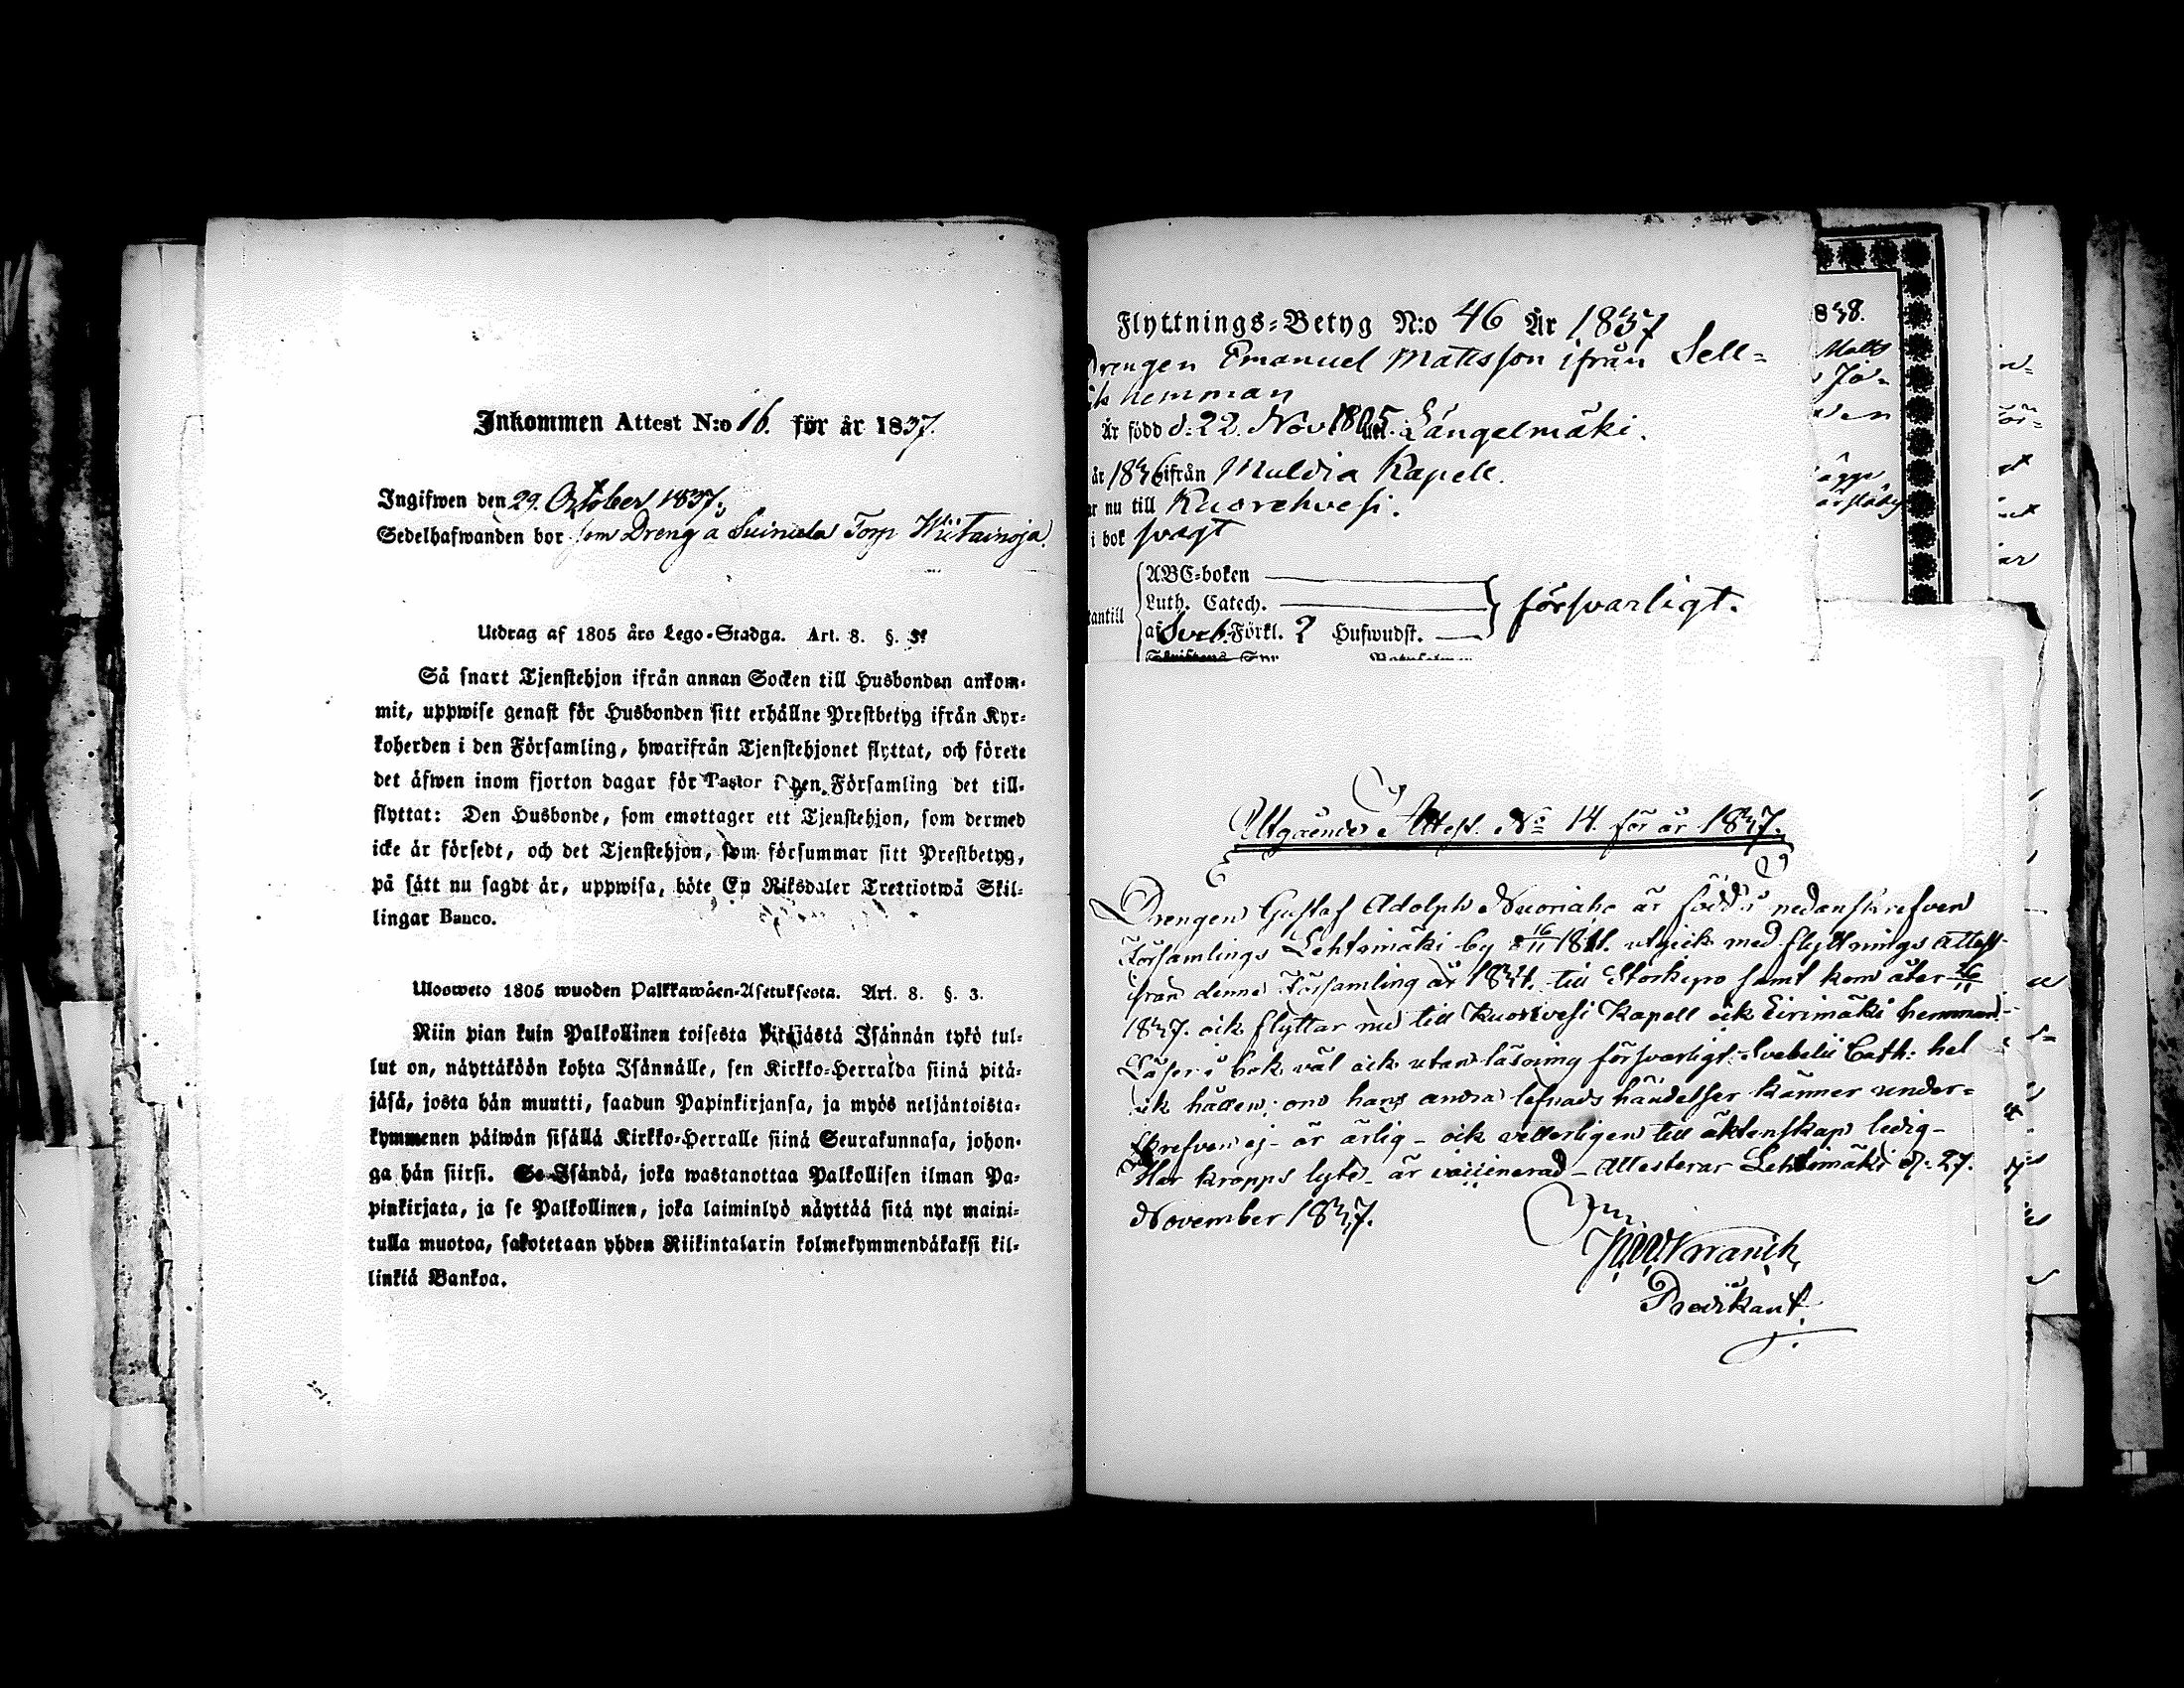 Inkommen Attest N:o 16. för år 1837.
Ingifwen den 29. October 1837.
Sedelhafwanden bor som Dreng å Suinula Torp Wiitainoja.
Utdrag af 1805 års Lego-Stadga. Art. 8. §. 3.
Så snart Tjenstehjon ifrån annan Socken till Husbonden ankom-
mit, uppwise genast för Husbonden sitt erhållne Prestbetyg ifrån Kyr-
koherden i den Församling, hwarifrån Tjenstehjonet flyttat, och förete
det äfwen inom fjorton dagar för Pastor i den Församling det till-
flyttat: Den Husbonde, som emottager ett Tjenstehjon, som dermed
icke är försedt, och det Tjenstehjon, som försummar sitt Prestbetyg,
på sätt nu sagdt är, uppwisa, böte En Riksdaler Trettiotwå Skil-
lingar Banco.
Ulosweto 1805 wuoden Palkkawäen-Asetuksesta. Art. 8. §. 3.
Niin pian kuin Palkollinen toisesta Pitäjästä Isännän tykö tul-
lut on, näyttäköön kohta Isännälle, sen Kirkko-Herralda siinä pitä-
jäsä, josta hän muutti, saadun Papinkirjansa, ja myös neljäntoista-
kymmenen päiwän sisällä Kirkko-Herralle siinä Seurakunnasa, johon-
ga hän siirsi. Se Isändä, joka wastanottaa Palkollisen ilman Pa-
pinkirjata, ja se Palkollinen, joka laiminlyö näyttää sitä nyt maini-
tulla muotoa, sakotetaan yhden Riikintalarin kolmekymmendäkaksi kil-
linkiä Bankoa.
Flyttnings-Betyg N:o 46 År 1837
Drengen Emanuel Mattsson ifrån Sell-
hemman
Är född d: 22. Nov 1805. Längelmäki.
år 1836 ifrån Muldia Kapell.
nu till Kuorehvesi.
i bok svagt
ABC-boken
Luth. Catech.
af Sveb. Förkl. 2 Hufwudst.
försvarligt.
utantill
838.
Matts
Utgående Attest. No 14. för år 1837.
Drengen Gustaf Adolph Nuoriaho är född i nedanskrefven
Församlings Lehtimäki by d 16/11 1811. utgick med flyttnings attest
ifrån denna Församling år 1834. till Storkyro samt kom åter 26/11
1837. och flyttar nu till Kuorevesi Kapell och Eirimäki hemman.
Läser i bok väl och utan läsning försvarligt. Svebelii Cath: hel
och hållen; om hans andra lefnads händelser känner under-
skrefven ej - är ärlig - och vetterligen till äktenskap ledig -
Har kropps lyte - är vaccinerad - Attesterar Lehtimäki d: 27.
November 1837.
Predikant.